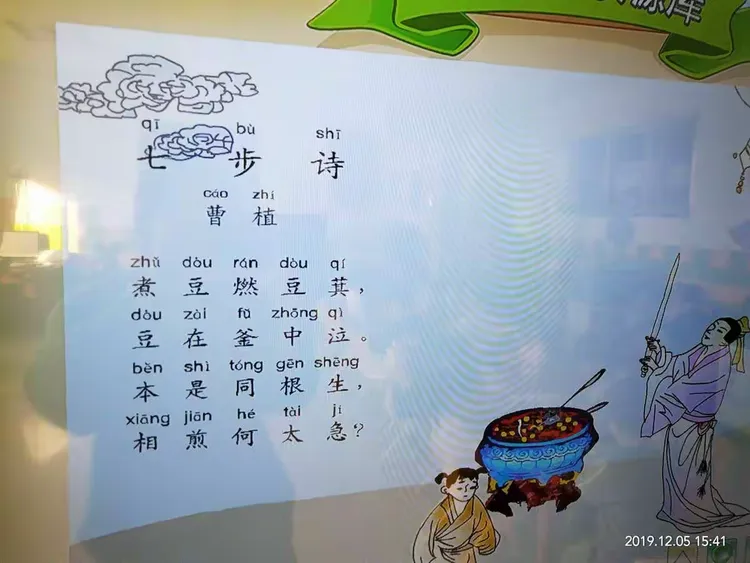 库
qī bù shī
七 步 诗
cáo zhí
曹 植
zhǔ dòu rán dòu qí
煮 豆 燃 豆 萁，
dòu zài fǔ zhōng qì
豆 在 釜 中 泣。
běn shì tóng gēn shēng
本 是 同 根 生，
xiāng jiān hé tài jí
相 煎 何 太 急？
2019.12.05 15:41